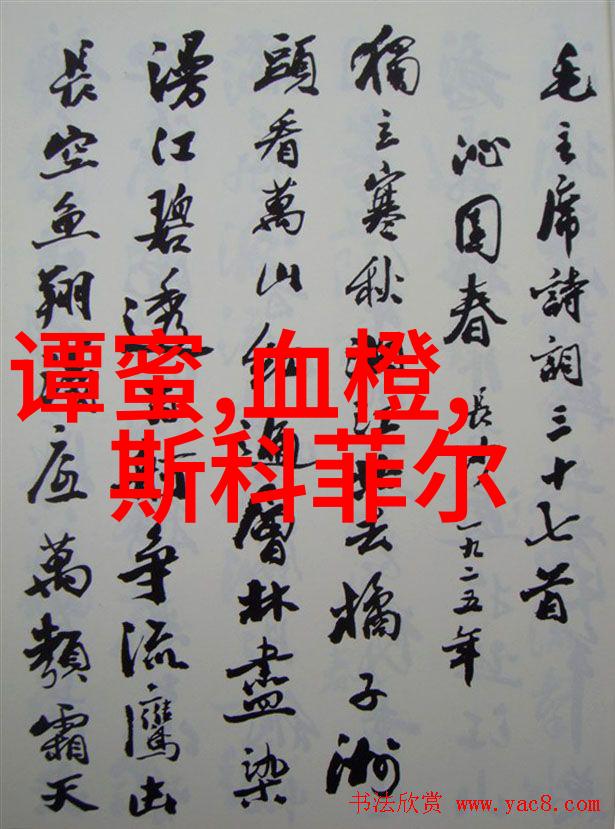 毛主席詩詞三十七首
沁園春 長沙 一九二五年
獨立寒秋湘江北去橘子洲
頭看萬山红遍層林盡染
漫江碧透舸争流鷹击
長空魚翔底萬類霜天
谭蜜,血橙,
斯科菲尔
书法欣赏 www.yac8.com